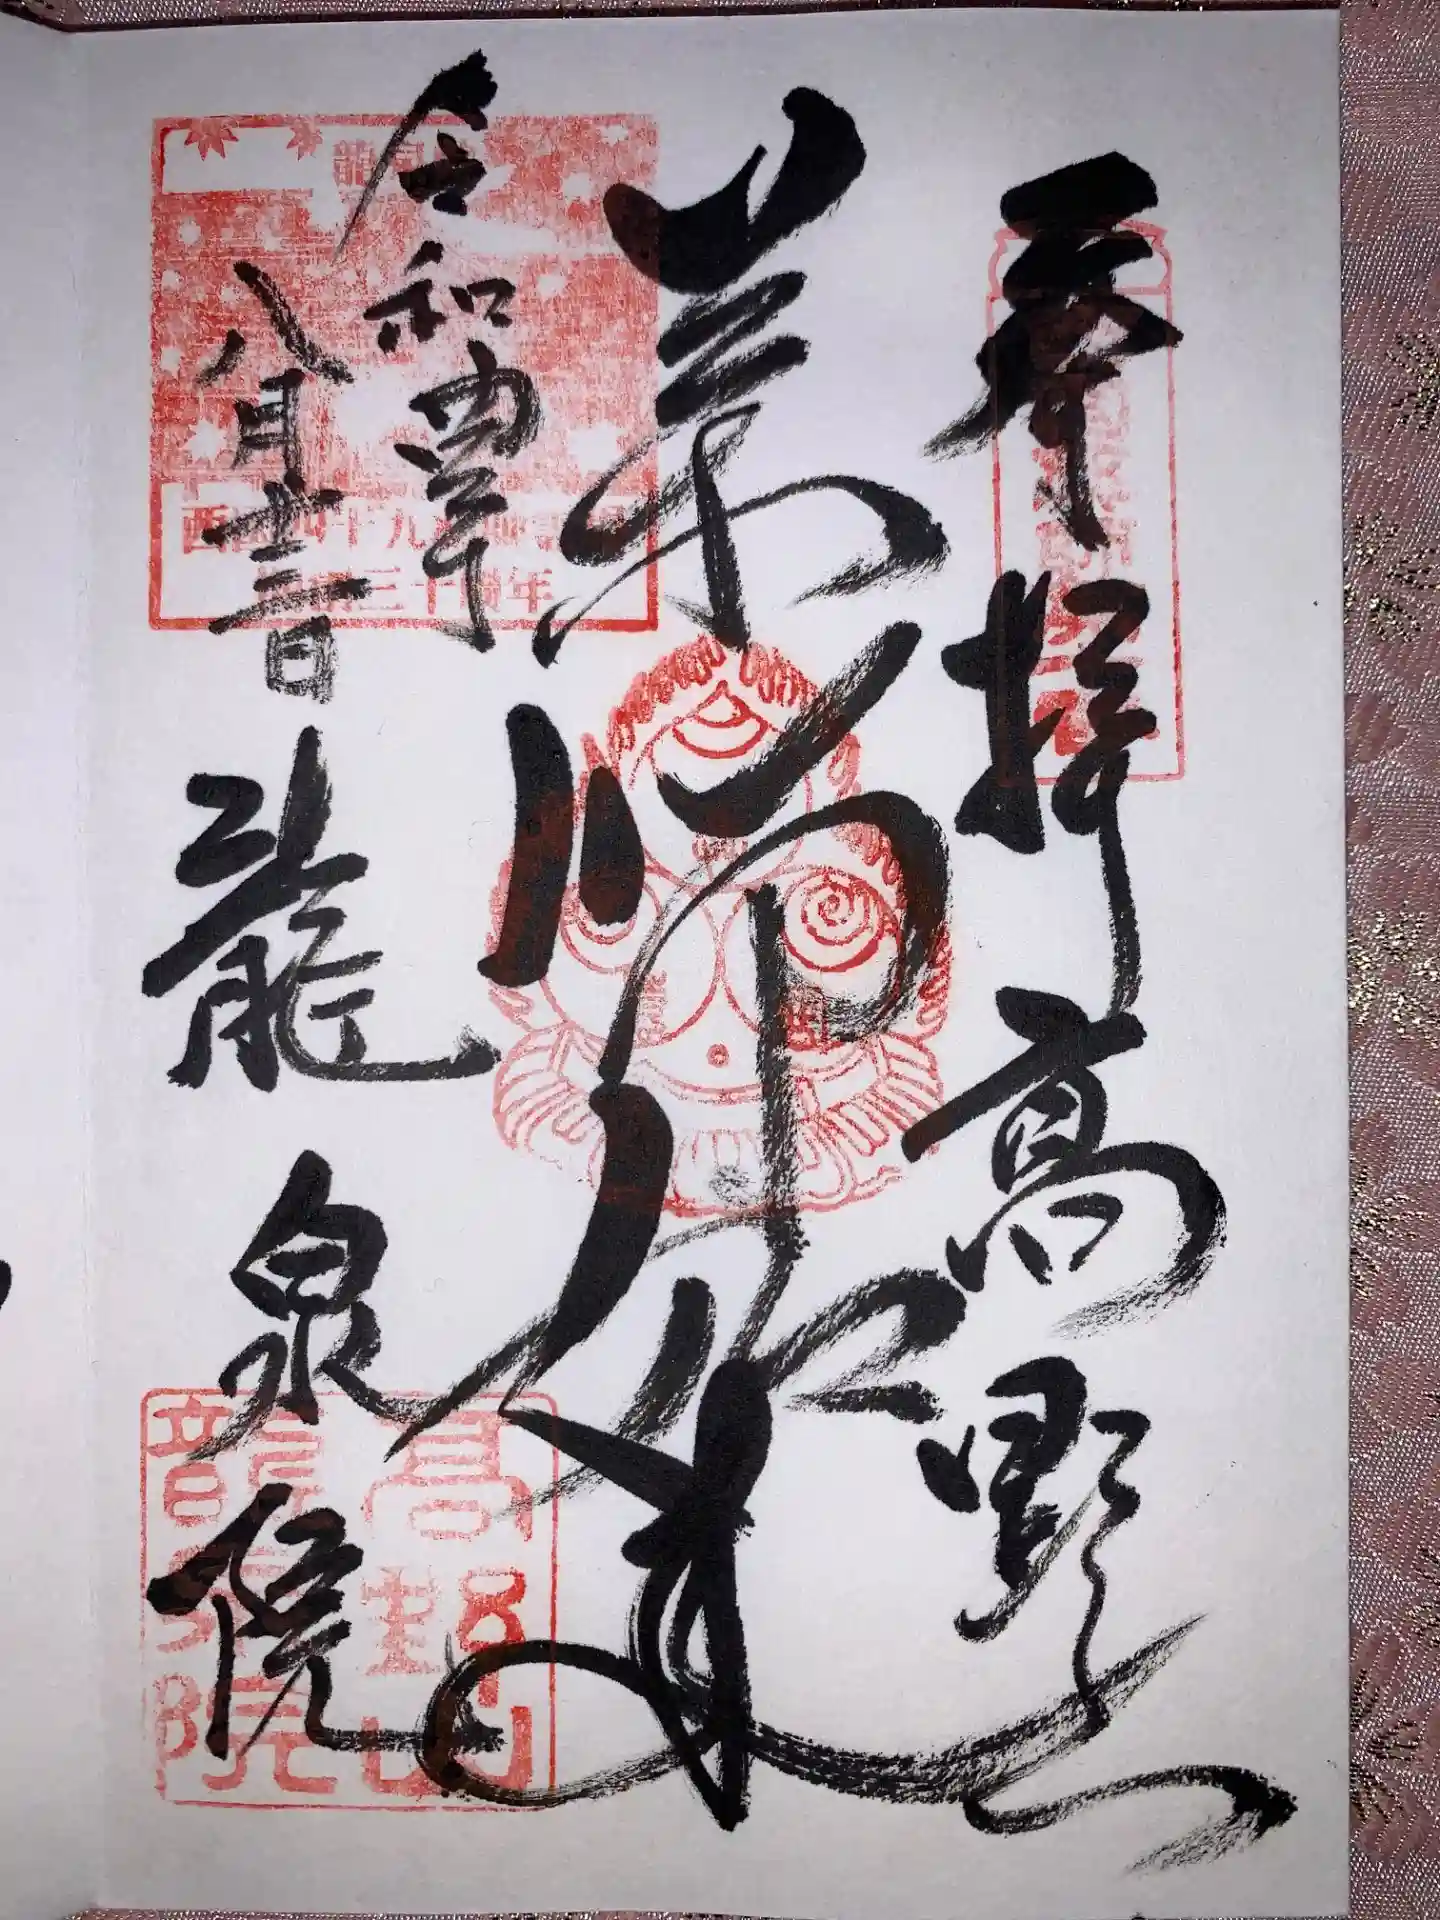 奉拝 高野山
薬師如来
令和四年
八月十三日
龍泉院
西国四十九薬師霊場
三十周年
高野山
龍泉院